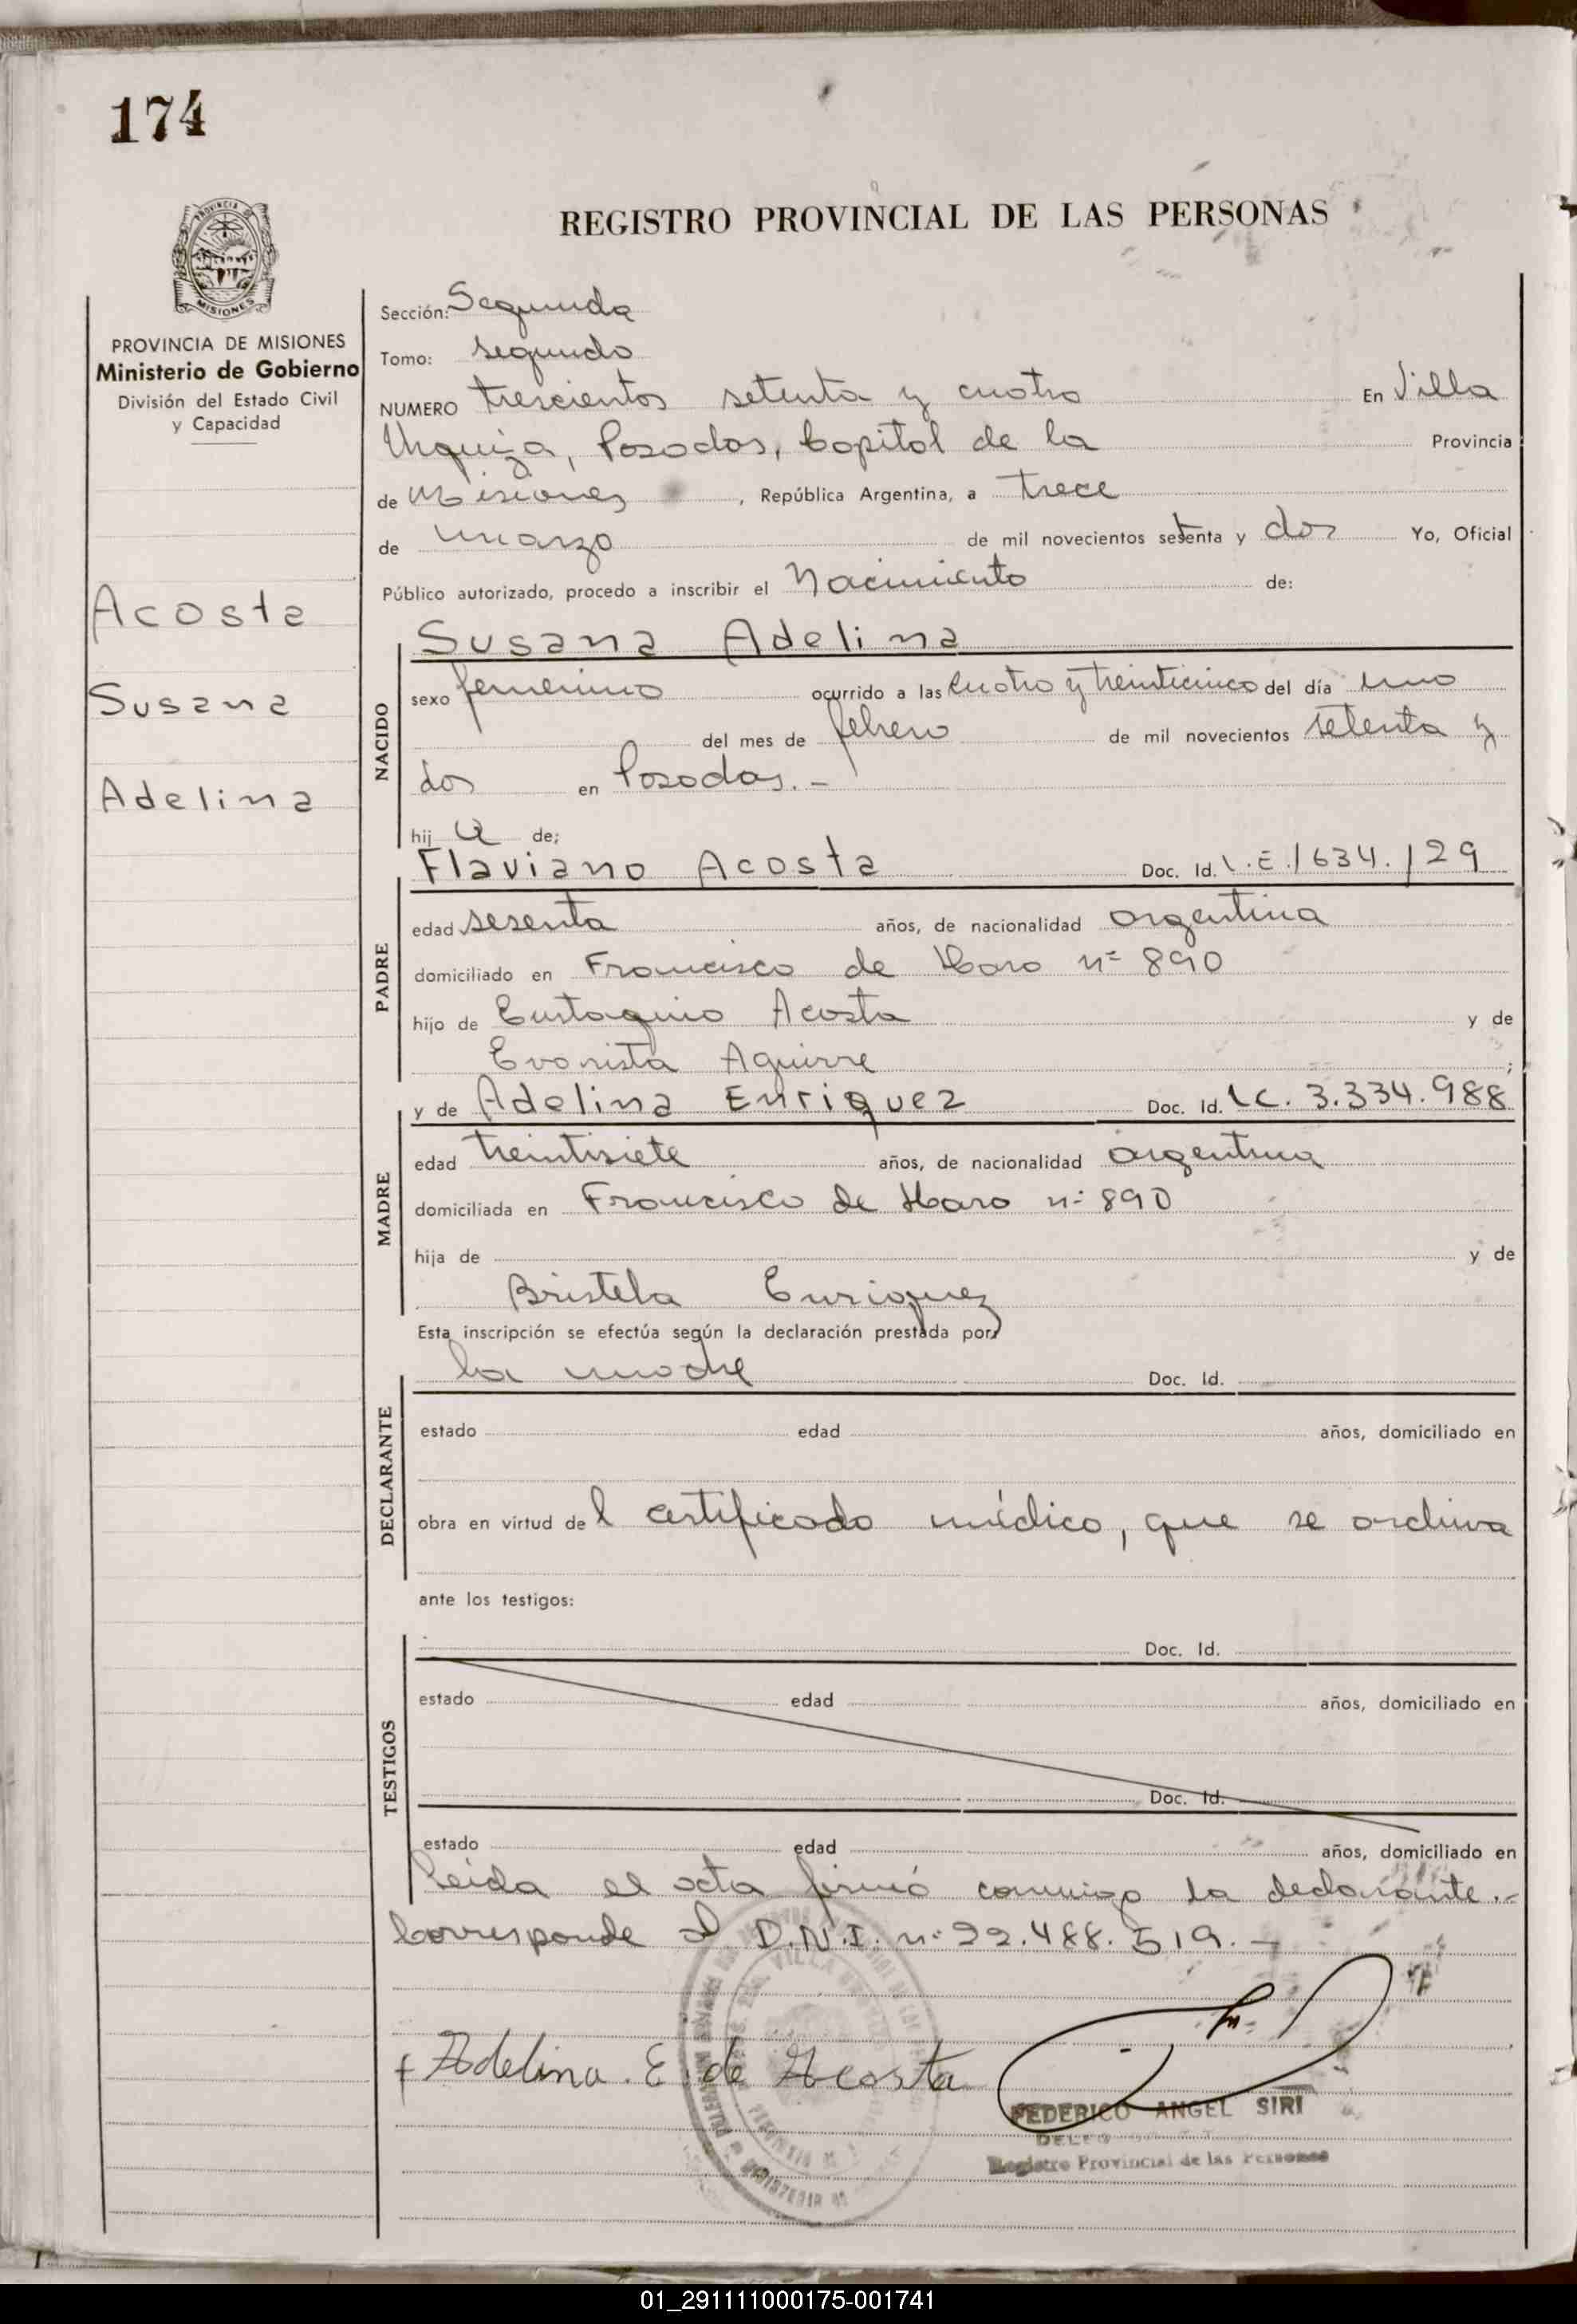 174
REGISTRO PROVINCIAL DE LAS PERSONAS
PROVINCIA DE
MISIONES
PROVINCIA DE MISIONES
Ministerio de Gobierno
División del Estado Civil
y Capacidad
Acosta
Susana
Adelina
Sección: Segunda
Tomo: segundo
NUMERO trescientos setenta y cuatro En Villa
Urquiza, Posadas, Capital de la Provincia
de Misiones, República Argentina, a trece
de marzo de mil novecientos setenta y dos Yo, Oficial
Público autorizado, procedo a inscribir el Nacimiento de:
NACIDO
Susana Adelina
sexo femenino ocurrido a las cuatro y treinticinco del día uno
del mes de febrero de mil novecientos setenta y
dos en Posadas.-
hij a de;
PADRE
Flaviano Acosta Doc. Id. L.E. 1634.129
edad sesenta años, de nacionalidad argentina
domiciliado en Francisco de Haro nº 890
hijo de Eustaquio Acosta y de
Evarista Aguirre ;
MADRE
y de Adelina Enriquez Doc. Id. LC. 3.334.988
edad treintisiete años, de nacionalidad argentina
domiciliada en Francisco de Haro nº 890
hija de y de
Bristela Enriquez
Esta inscripción se efectúa según la declaración prestada por
DECLARANTE
la madre Doc. Id.
estado edad años, domiciliado en
obra en virtud de l certificado médico, que se archiva
ante los testigos:
TESTIGOS
Doc. Id.
estado edad años, domiciliado en
Doc. Id.
estado edad años, domiciliado en
Leida el acta firmó conmigo la declarante.-
Corresponde al D.N.I. nº 22.488.519.-
Adelina. E. de Acosta
FEDERICO ANGEL SIRI
Registro Provincial de las Personas
01_291111000175-001741